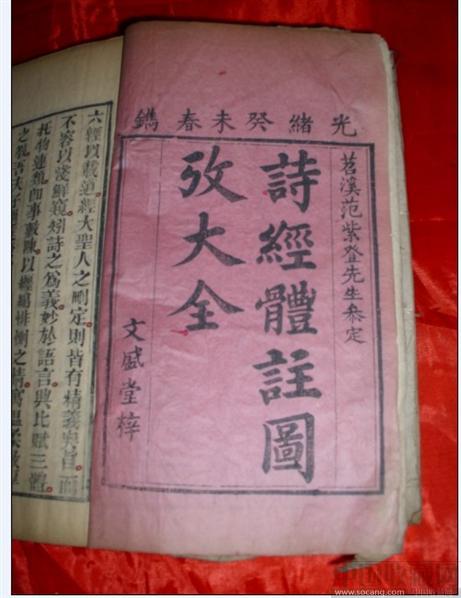 光緒癸未春鐫
苕溪范紫登先生叅定
詩經體註圖
攷大全
文盛堂梓
六經以載道經大聖人之刪定則皆有精義奧旨而
不容以淺鮮窺矧詩之爲義妙於語言興比賦三體
托物連類即事敷陳以經緯
www.socang.com